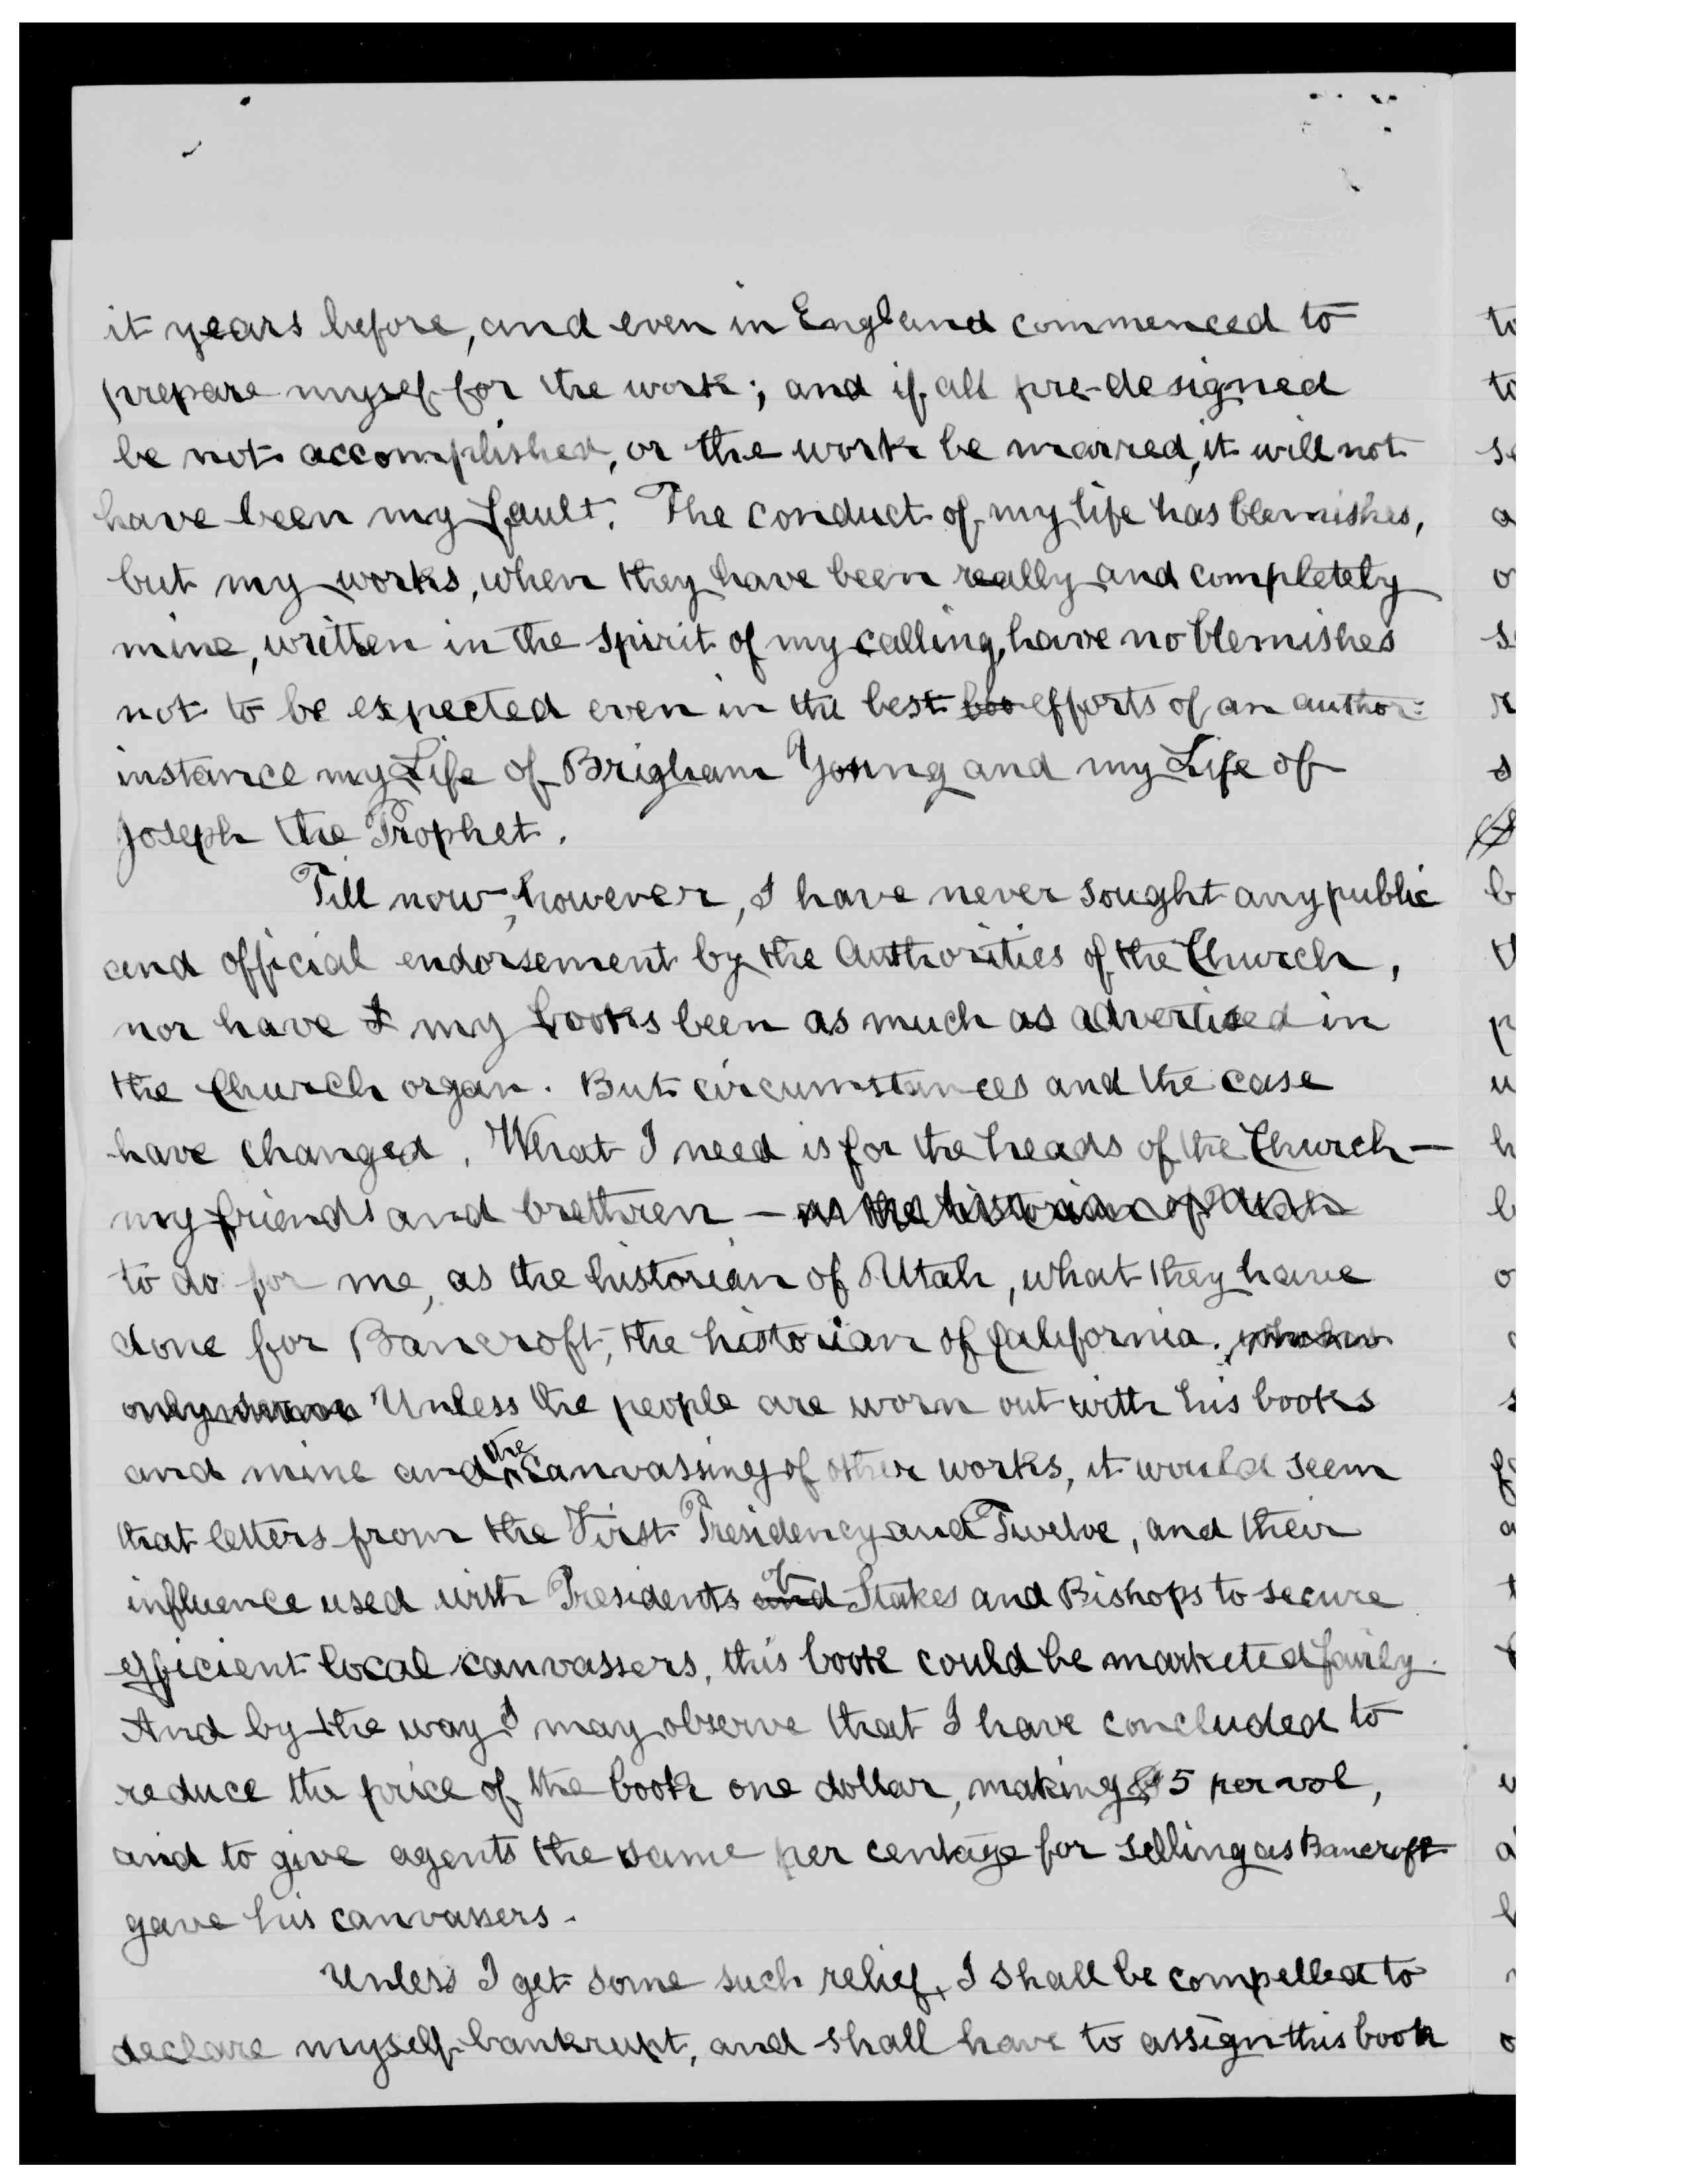 it years before, and even in England commenced to
prepare mysef for the work; and if all pre-designed
be not accomplished, or the work be marred, it will not
have been my fault. The conduct of my life has blemishes,
but my works, when they have been really and completely
mine, written in the spirit of my calling, have no blemishes
not to be expected even in the best boo efforts of an author:
instance my Life of Brigham Young and my Life of
Joseph the Prophet.
Till now, however, I have never sought any public
and official endorsement by the Authorities of the Church,
nor have I my books been as much as advertised in
the Church organ. But circumstances and the case
have changed. What I need is for the heads of the Church—
my friends and brethren — as the historian of Utah
to do for me, as the historian of Utah, what they have
done for Bancroft, the historian of California.
only Unless the people are worn out with his books
and mine and the canvassing of other works, it would seem
that letters from the First Presidency and Twelve, and their
influence used with Presidents and of Stakes and Bishops to secure
efficient local canvassers, this book could be marketed fairly.
And by the way I may observe that I have concluded to
reduce the price of the book one dollar, making $5 per vol,
and to give agents the same per centage for selling as Bancroft
gave his canvassers.
Unless I get some such relief, I shall be compelled to
declare myself bankrupt, and shall have to assign this book